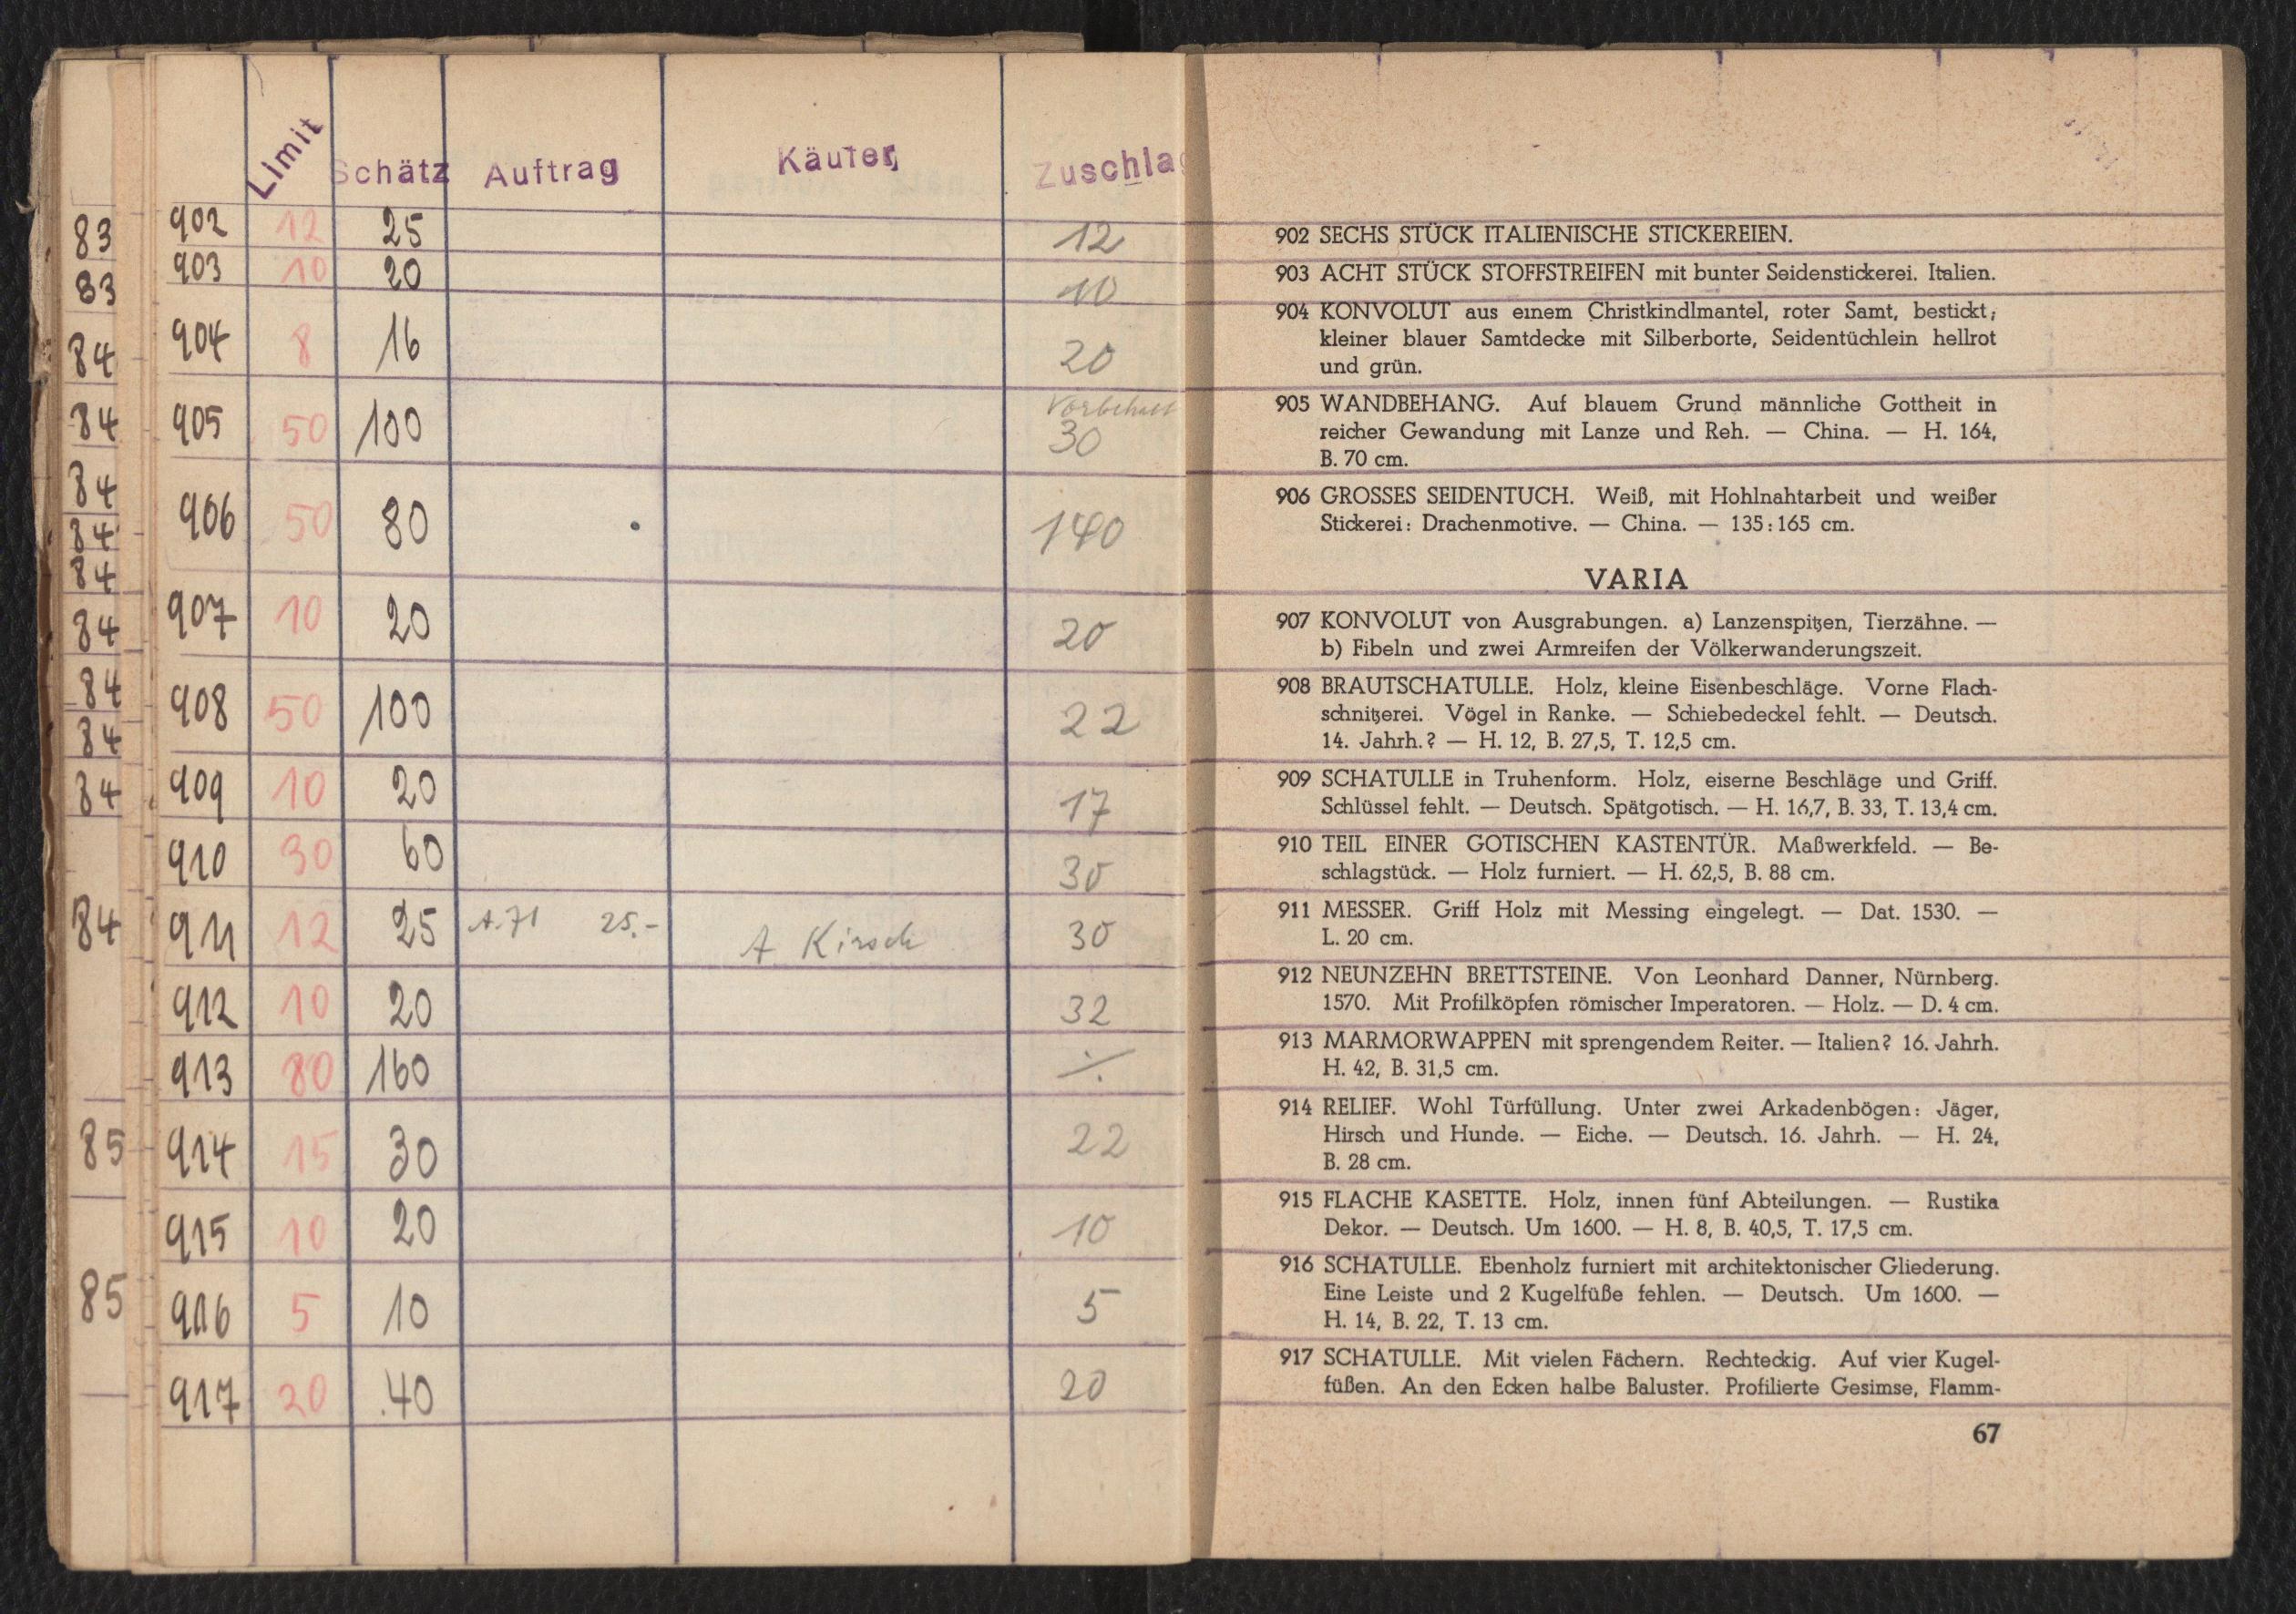 Limit Schätz Auftrag Käufer Zuschlag
83 902 12 25 12
83 903 10 20 10
84 904 8 16 20
84 905 50 100 Vorbehalt 30
84 906 50 80 140
84
84
84 907 10 20 20
84 908 50 100 22
84
84 909 10 20 17
910 30 60 30
84 911 12 25 A. 71 25.- A Kirsch 30
912 10 20 32
913 80 160 ⁒
85 914 15 30 22
915 10 20 10
85 916 5 10 5
917 20 40 20
902 SECHS STÜCK ITALIENISCHE STICKEREIEN.
903 ACHT STÜCK STOFFSTREIFEN mit bunter Seidenstickerei. Italien.
904 KONVOLUT aus einem Christkindlmantel, roter Samt, bestickt;
kleiner blauer Samtdecke mit Silberborte, Seidentüchlein hellrot
und grün.
905 WANDBEHANG. Auf blauem Grund männliche Gottheit in
reicher Gewandung mit Lanze und Reh. — China. — H. 164,
B. 70 cm.
906 GROSSES SEIDENTUCH. Weiß, mit Hohlnahtarbeit und weißer
Stickerei: Drachenmotive. — China. — 135:165 cm.
VARIA
907 KONVOLUT von Ausgrabungen. a) Lanzenspitzen, Tierzähne. —
b) Fibeln und zwei Armreifen der Völkerwanderungszeit.
908 BRAUTSCHATULLE. Holz, kleine Eisenbeschläge. Vorne Flach-
schnitzerei. Vögel in Ranke. — Schiebedeckel fehlt. — Deutsch.
14. Jahrh.? — H. 12, B. 27,5, T. 12,5 cm.
909 SCHATULLE in Truhenform. Holz, eiserne Beschläge und Griff.
Schlüssel fehlt. — Deutsch. Spätgotisch. — H. 16,7, B. 33, T. 13,4 cm.
910 TEIL EINER GOTISCHEN KASTENTÜR. Maßwerkfeld. — Be-
schlagstück. — Holz furniert. — H. 62,5, B. 88 cm.
911 MESSER. Griff Holz mit Messing eingelegt. — Dat. 1530. —
L. 20 cm.
912 NEUNZEHN BRETTSTEINE. Von Leonhard Danner, Nürnberg.
1570. Mit Profilköpfen römischer Imperatoren. — Holz. — D. 4 cm.
913 MARMORWAPPEN mit sprengendem Reiter. — Italien? 16. Jahrh.
H. 42, B. 31,5 cm.
914 RELIEF. Wohl Türfüllung. Unter zwei Arkadenbögen: Jäger,
Hirsch und Hunde. — Eiche. — Deutsch. 16. Jahrh. — H. 24,
B. 28 cm.
915 FLACHE KASETTE. Holz, innen fünf Abteilungen. — Rustika
Dekor. — Deutsch. Um 1600. — H. 8, B. 40,5, T. 17,5 cm.
916 SCHATULLE. Ebenholz furniert mit architektonischer Gliederung.
Eine Leiste und 2 Kugelfüße fehlen. — Deutsch. Um 1600. —
H. 14, B. 22, T. 13 cm.
917 SCHATULLE. Mit vielen Fächern. Rechteckig. Auf vier Kugel-
füßen. An den Ecken halbe Baluster. Profilierte Gesimse, Flamm-
67